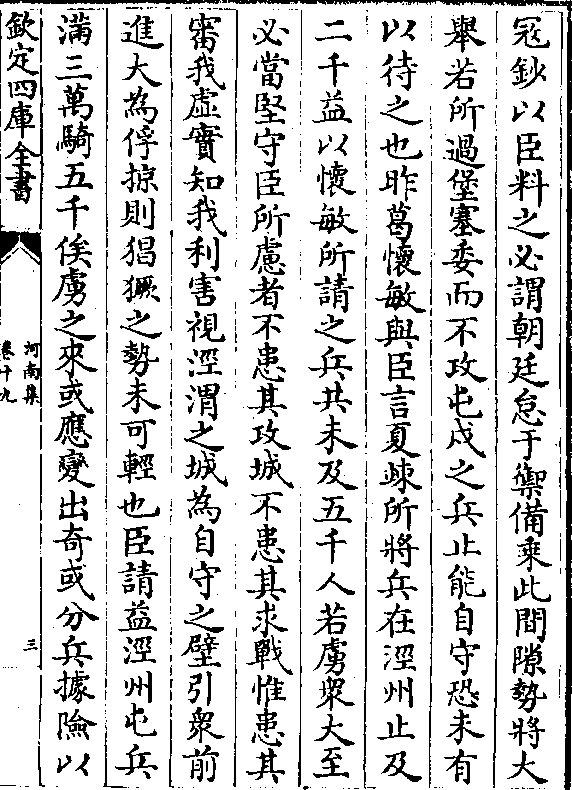 冦鈔以臣料之必謂朝廷怠于禦備乘此間隙勢將大
舉若所過堡塞委而不攻屯戍之兵止能自守恐未有
以待之也昨葛懷敏與臣言夏竦所將兵在涇州止及
二千益以懷敏所請之兵共未及五千人若虜衆大至
必當堅守臣所慮者不患其攻城不患其求戰惟患其
審我虛實知我利害視涇渭之城為自守之壁引衆前
進大為俘掠則猖獗之勢未可輕也臣請益涇州屯兵
滿三萬騎五千俟虜之來或應變出奇或分兵據險以
欽定四庫全書
河南集
卷十九
三